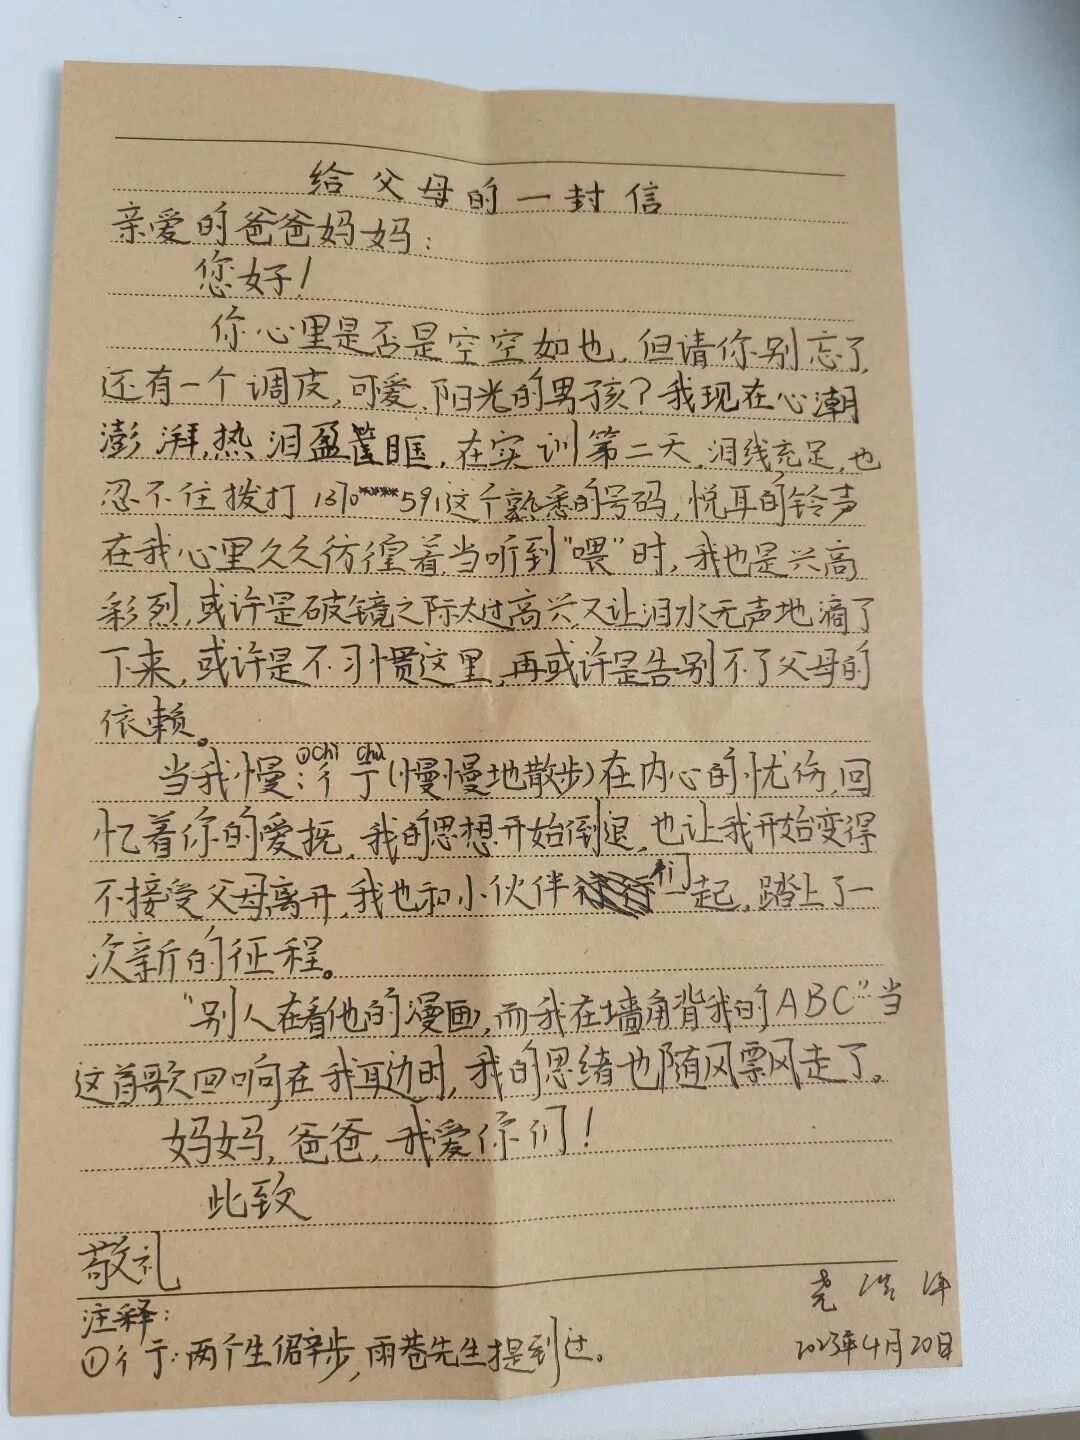 给父母的一封信
亲爱的爸爸妈妈:
您好!
你心里是否是空空如也,但请你别忘了,
还有一个调皮,可爱、阳光的男孩?我现在心潮
澎湃,热泪盈眶,在实训第二天,泪线充足,也
忍不住拨打1370****591这个熟悉的号码,悦耳的铃声
在我心里久久彷徨着,当听到“喂”时,我也是兴高
彩列,或许是破镜之际太过高兴,又让泪水无声地滴了
下来,或许是不习惯这里,再或许是告别不了父母的
依赖。
①chì chù
当我慢:彳亍(慢慢地散步)在内心的忧伤,回
忆着你的爱抚,我的思想开始倒退,也让我开始变得
不接受父母离开,我也和小伙伴们一起,踏上了一
次新的征程。
“别人在看他的漫画,而我在墙角背我的ABC”当
这首歌回响在我耳边时,我的思绪也随风飘走了。
妈妈,爸爸,我爱你们!
此致
敬礼
注释:
①彳亍:两个生僻步,雨巷先生提到过。
2023年4月20日